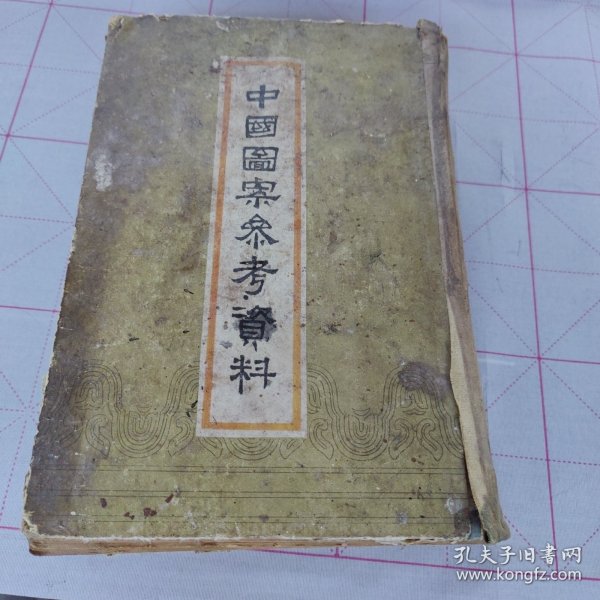 中國圖案参考資料
孔夫子旧書网
www.kongfz.com